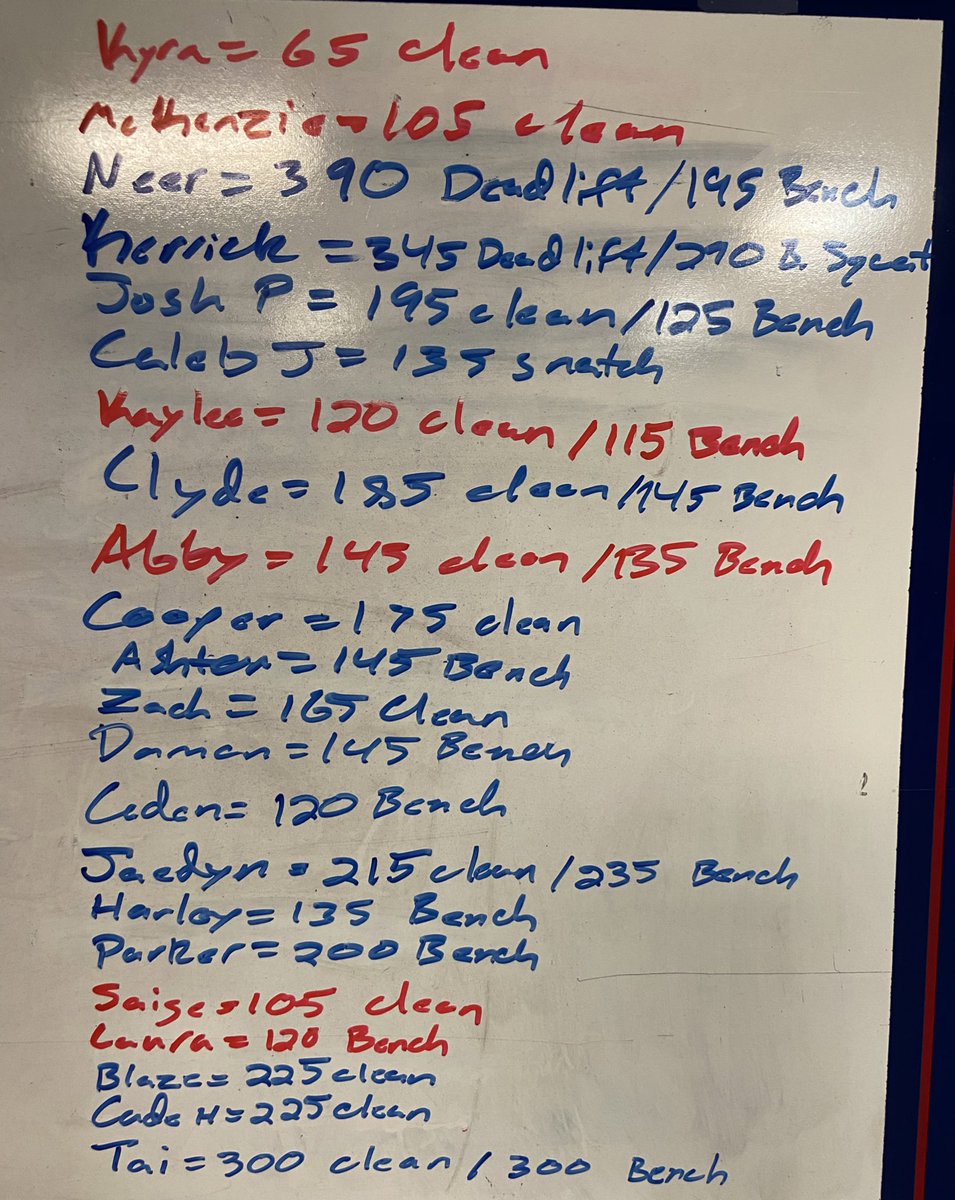 Kyra = 65 clean
McKenzie = 105 clean
Neer = 390 Deadlift / 195 Bench
Kerrick = 345 Deadlift / 290 B. Squat
Josh P = 195 clean / 125 Bench
Caleb J = 135 snatch
Kaylee = 120 clean / 115 Bench
Clyde = 185 clean / 145 Bench
Abby = 145 clean / 135 Bench
Cooper = 175 clean
Ashton = 145 Bench
Zach = 165 Clean
Daman = 145 Bench
Caden = 120 Bench
Jaedyn = 215 clean / 235 Bench
Harley = 135 Bench
Parker = 200 Bench
Saige = 105 clean
Laura = 120 Bench
Blaze = 225 clean
Cade H = 225 clean
Tai = 300 clean / 300 Bench